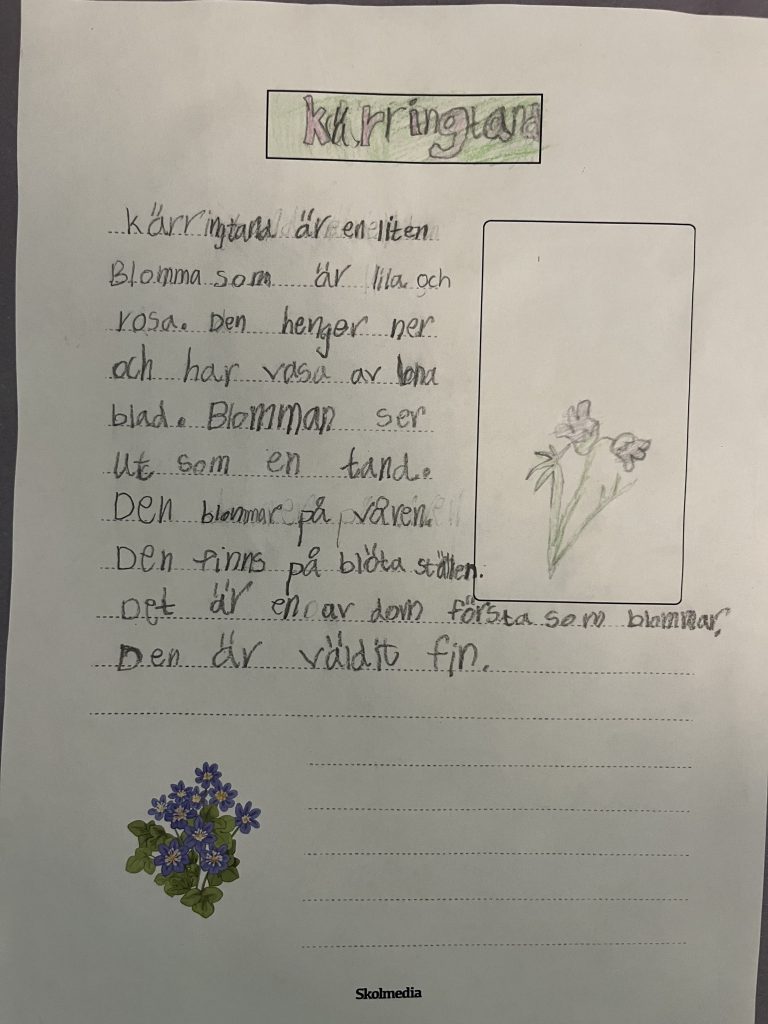 kärringtand
kärringtand är en liten
Blomma som är lila och
rosa. Den henger ner
och har vasa av
blad. Blomman ser
ut som en tand.
Den blommar på våren.
Den finns på blöta ställen.
Det är en av dom första som blommar.
Den är väldit fin.
Skolmedia